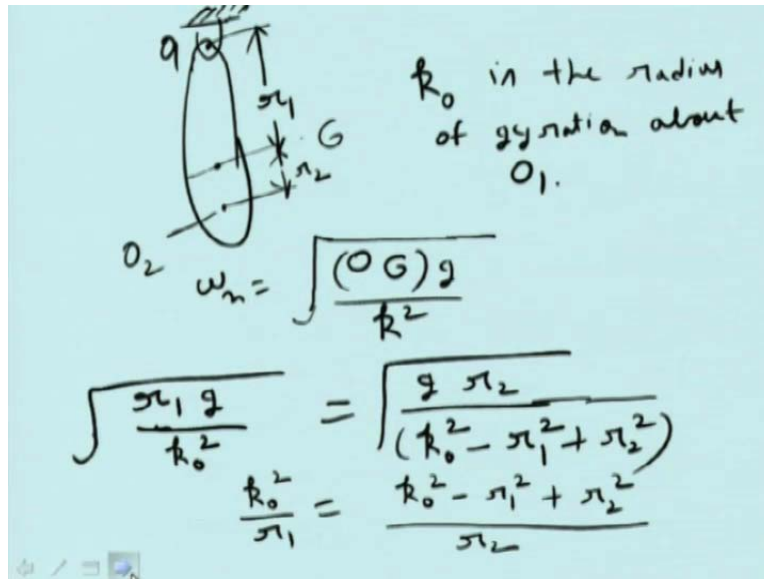 O1
r1
G
r2
O2
k0 in the radius
of gyration about
O1.
ωn = √((O G) g / k²)
√(r1 g / k0²) = √(g r2 / (k0² - r1² + r2²))
k0² / r1 = (k0² - r1² + r2²) / r2